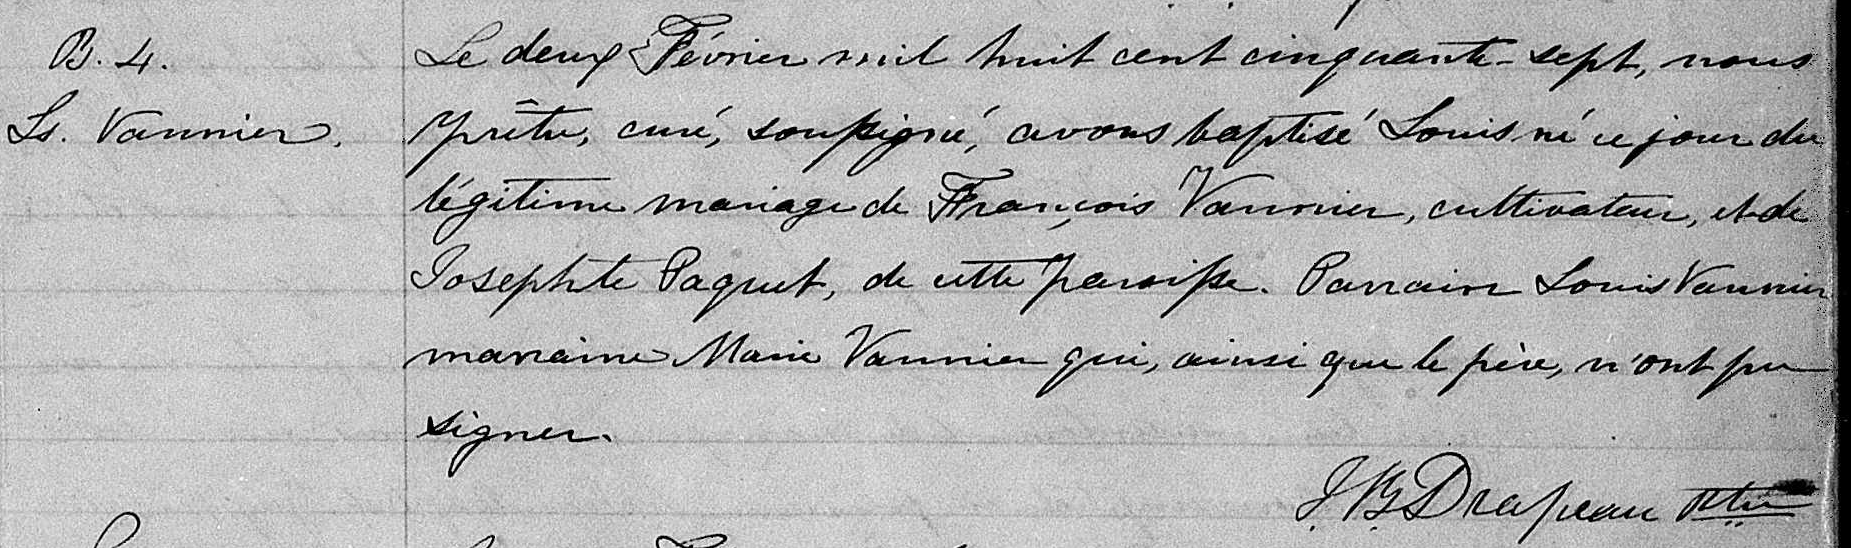 B. 4.
Ls. Vannier.
Le deux Février mil huit cent cinquante-sept, nous
prêtre, curé, soussigné, avons baptisé Louis né ce jour du
légitime mariage de François Vannier, cultivateur, et de
Josephte Paquet, de cette paroisse. Parrain Louis Vannier
marraine Marie Vannier qui, ainsi que le père, n'ont pu
signer.
J. B. Drapeau Ptre